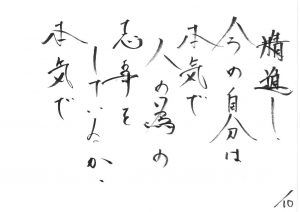 精進し、
今の自分は
本気で
人の為の
志事を
しているか、
本気で
/10